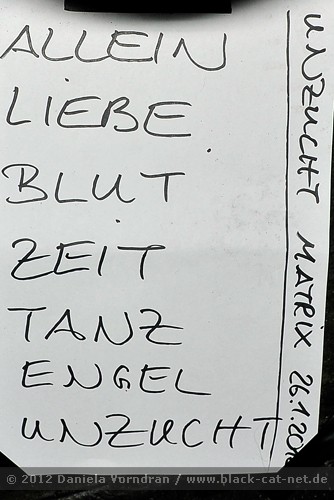 ALLEIN
LIEBE
BLUT
ZEIT
TANZ
ENGEL
UNZUCHT
UNZUCHT MATRIX 26.1.201
© 2012 Daniela Vorndran / www.black-cat-net.de